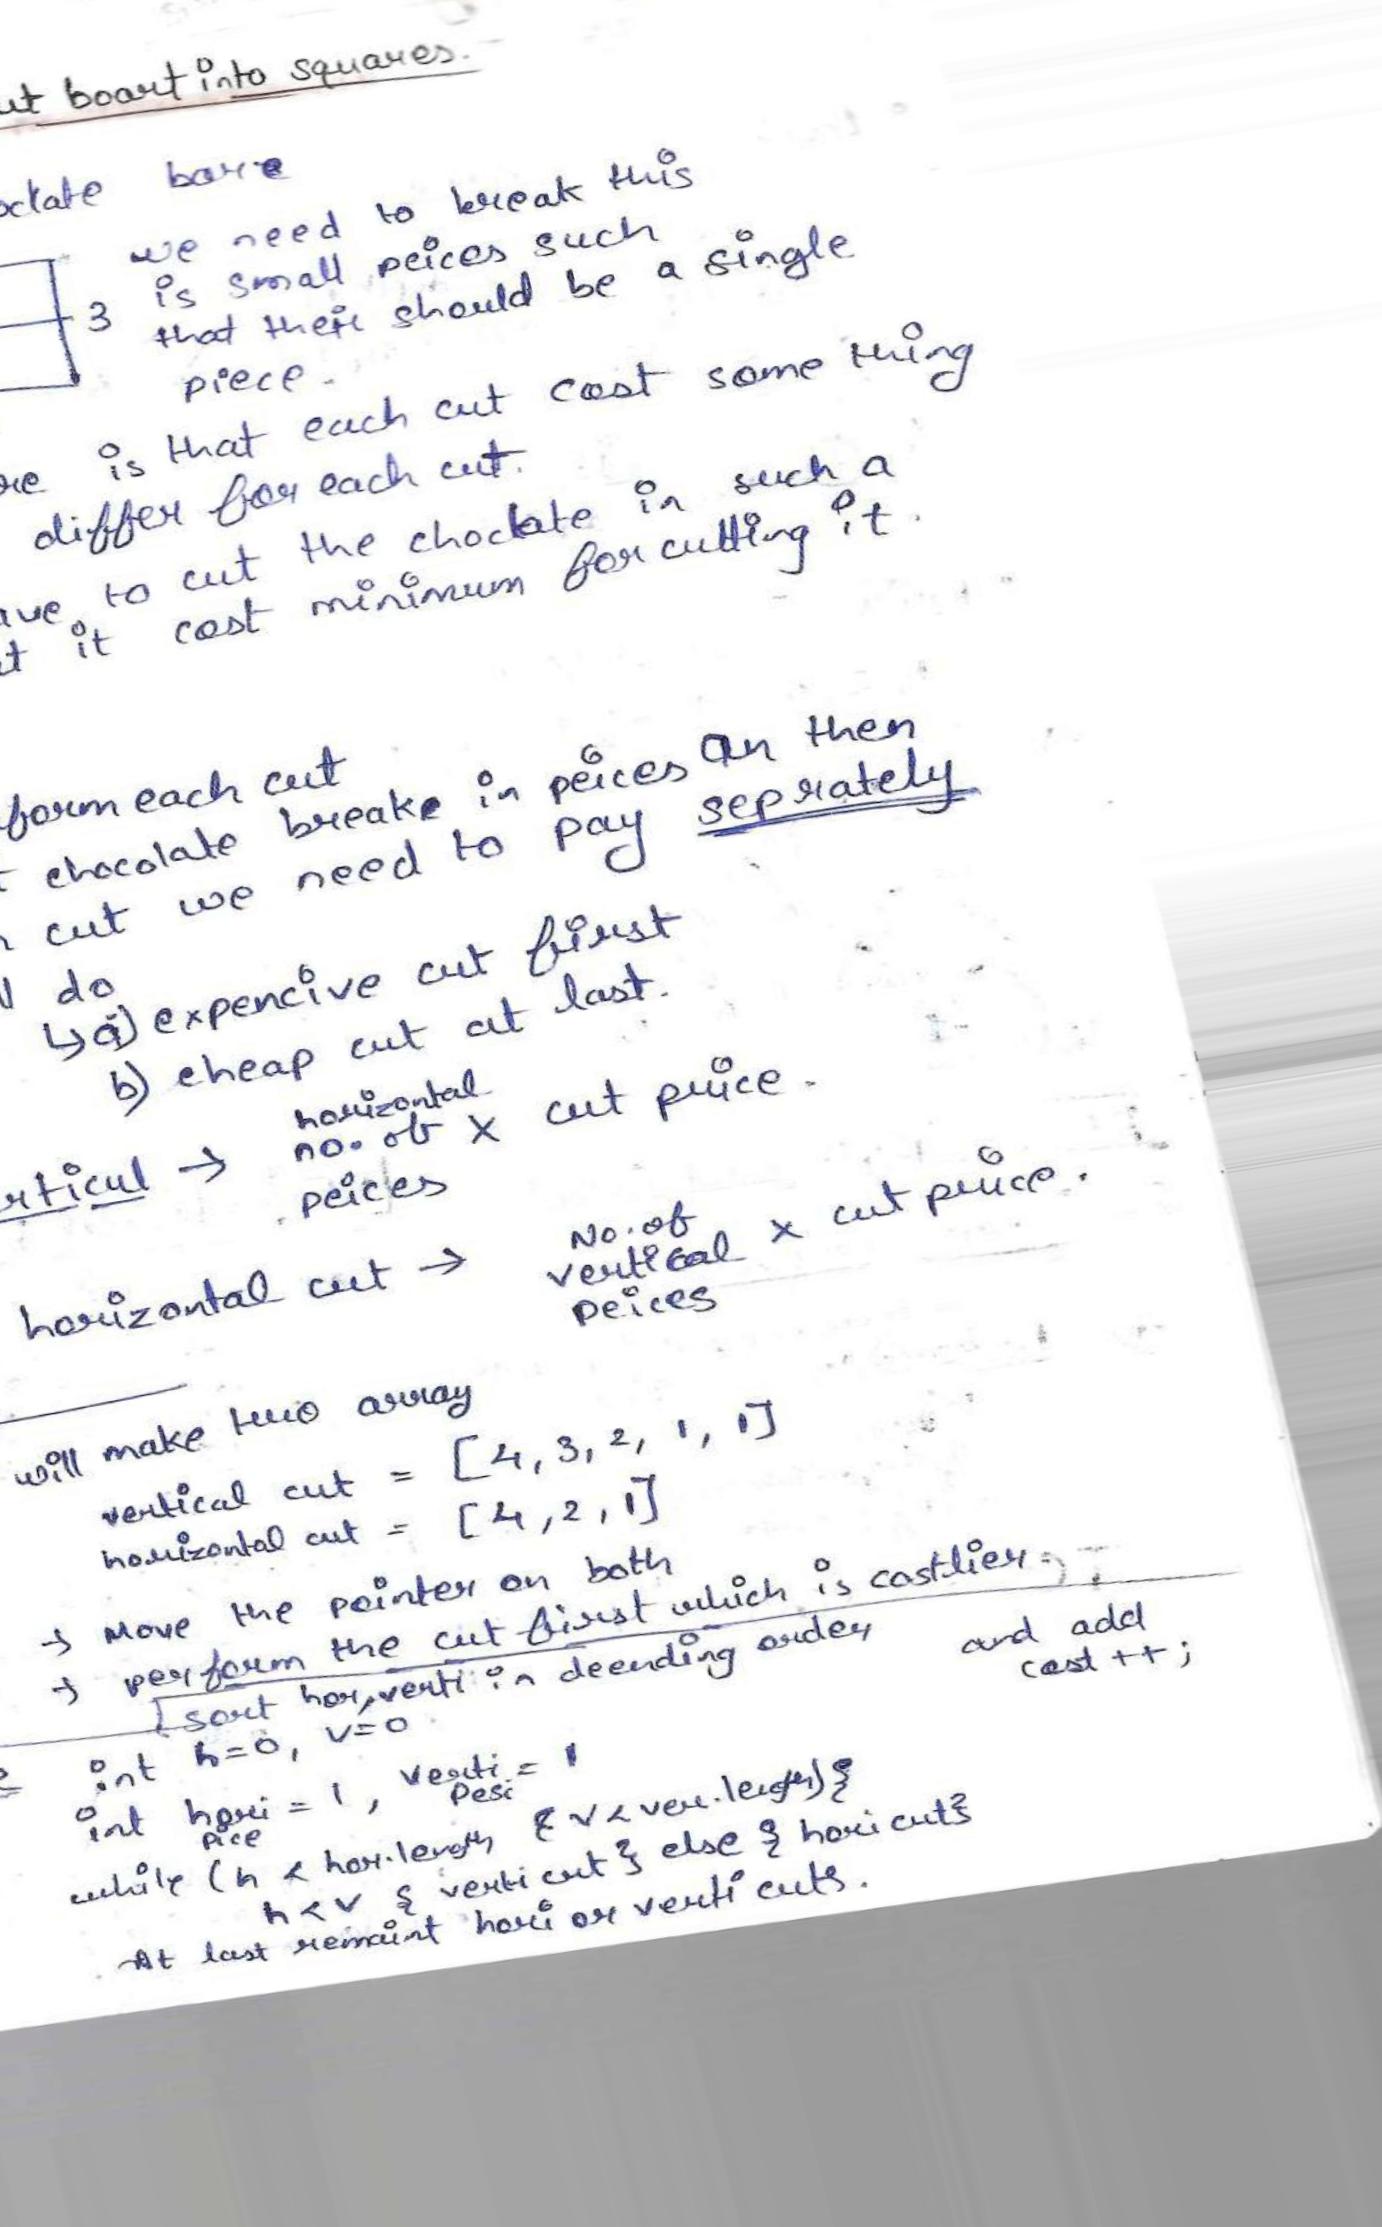 ut boart into squares.
oclate bare
we need to break this
is small peices such
3 that their should be a single
piece.
re is that each cut cost some thing
differ for each cut.
ave to cut the choclate in such a
t it cost minimum for cutting it.
form each cut
t chocolate breake in peices an then
n cut we need to pay seprately
l do
↳ a) expencive cut first
b) cheap cut at last.
rticul → horizontal no. of peices x cut price.
horizontal cut → No. of vertical peices x cut price.
will make two array
vertical cut = [4, 3, 2, 1, 1]
horizontal cut = [4, 2, 1]
→ Move the pointer on both
→ perform the cut first which is costlier
and add cost ++;
sort hor, verti in deending order
int h=0, v=0
int hori pice = 1, verti pesi = 1
while (h < hor.length & v < ver.length) {
h < v { verti cut } else { hori cut }
At last remaint hori or verti cuts.